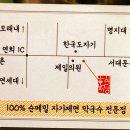 모래내
명지대
연희 IC
한국도자기
제일의원
서대문
연세대
100% 순메밀 자가제면 막국수 전문점